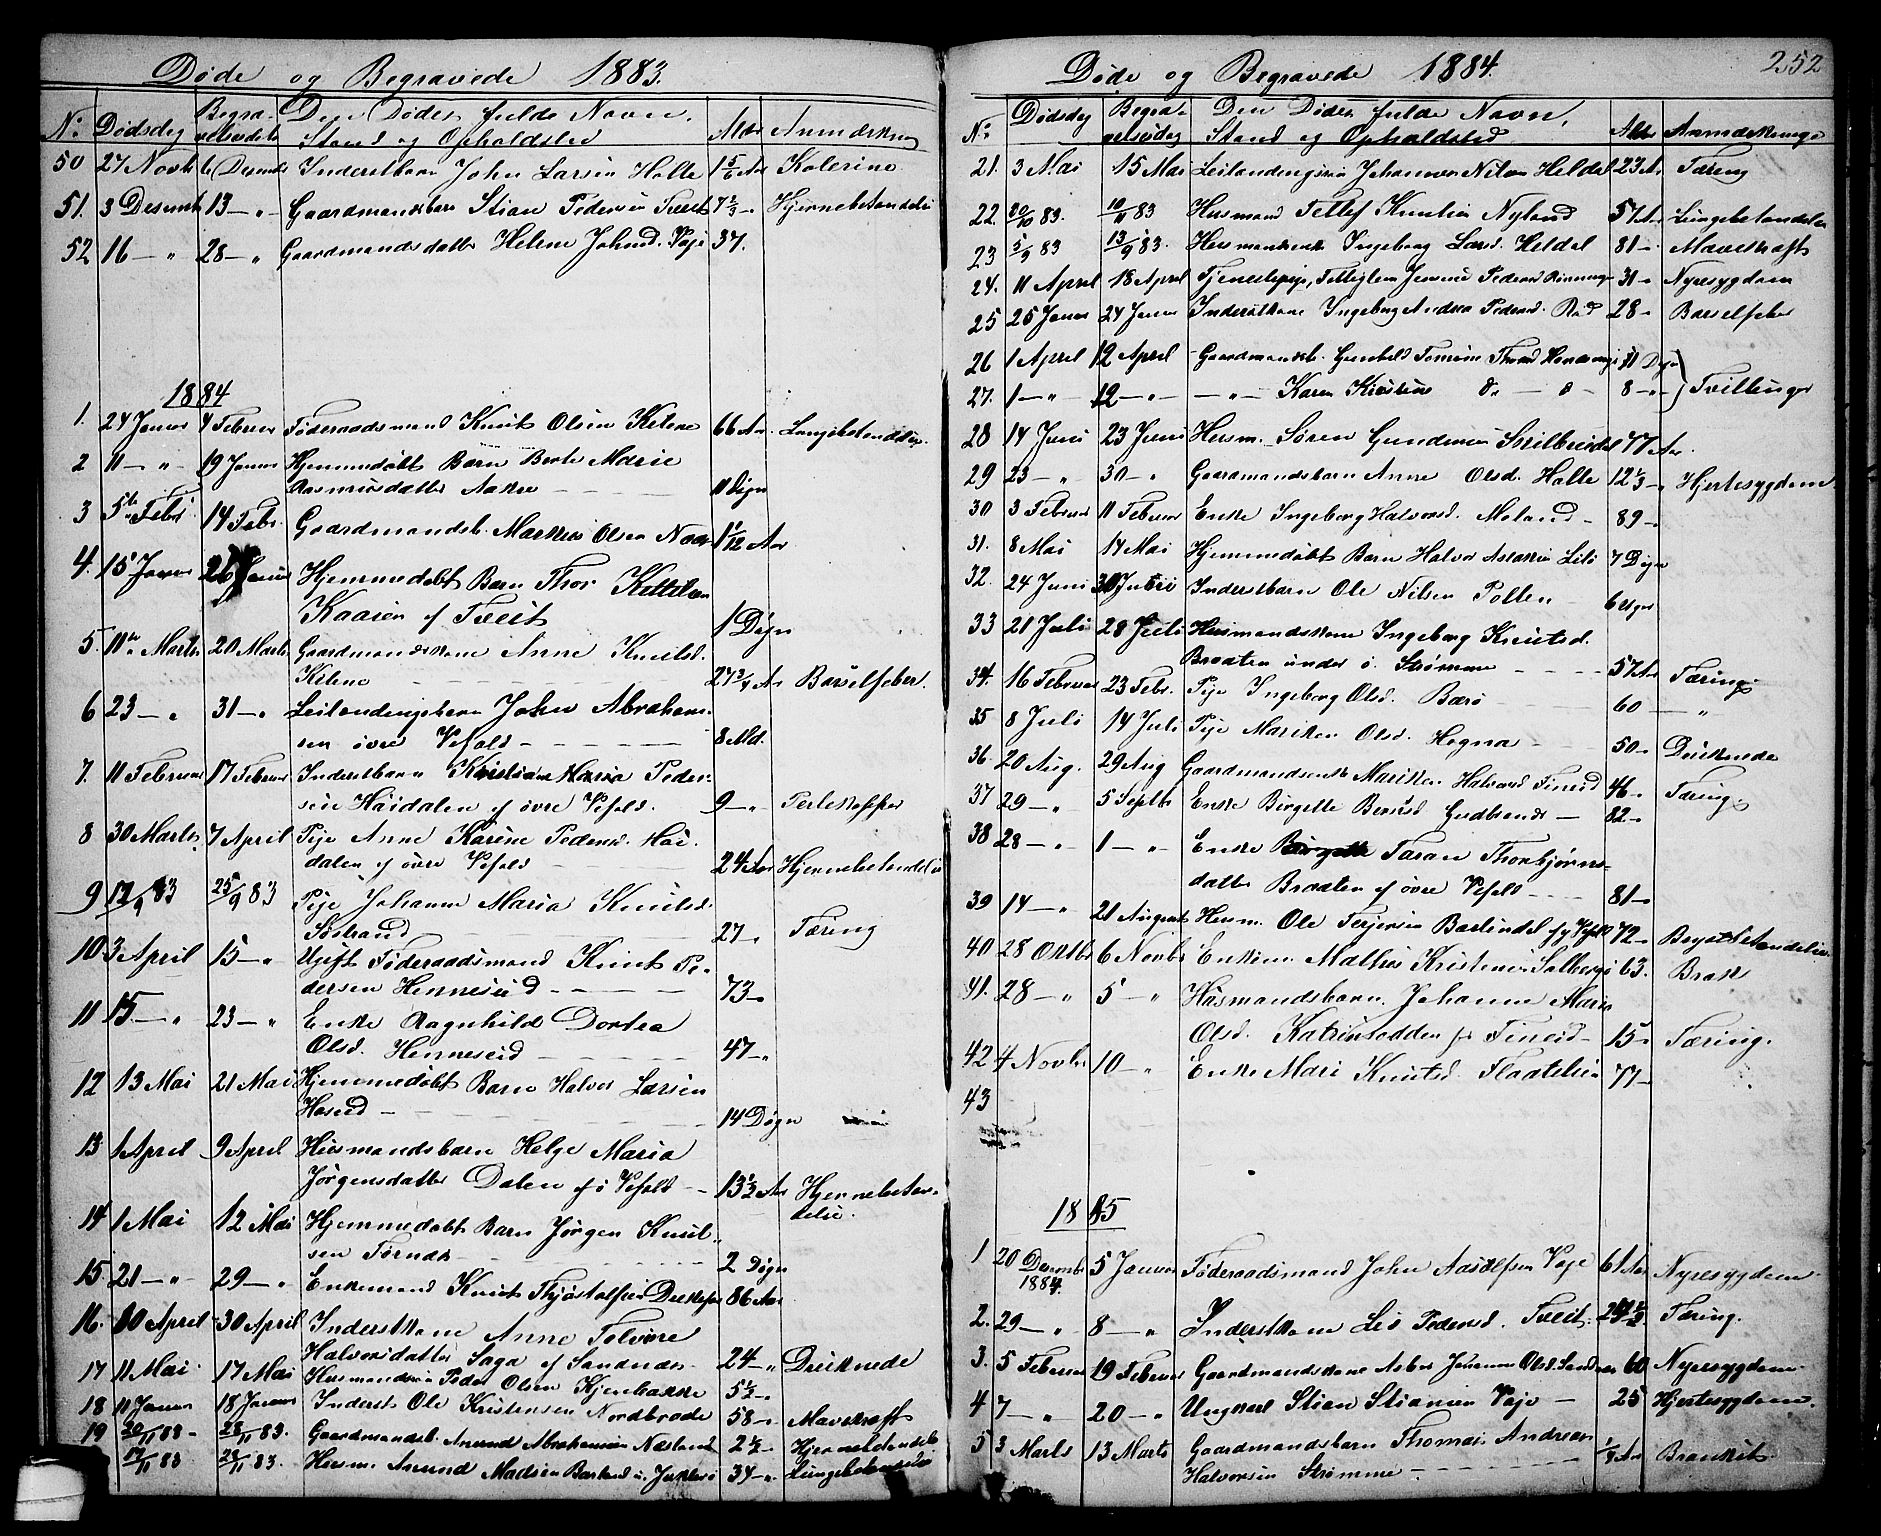 Døde og Begravede 1883.
No Dødsdag Begravelsesdato Den Dødes fulde Navn, Stand og Opholdsted Alder Anmærkning
50 27 Novbr 6 Desembr Inderstbarn John Larsen Holte 1 5/6 Aar Kolerine
51. 3 Desembr 13 — " Gaardmandsbarn Stian Pedersen Tveit 7 2/3 — Hjernebetændelse
52 16 — " 28 — " Gaardmandsdatter Helene Johnsd. Vaje 37.
1884
1. 24 Januar 4 Februar Føderaadsmand Knut Olsen Kilene 66 Aar. Lungebetændelse
2 11 — " 19 Januar Hjemmedøbt Barn Berte Marie
Rasmusdatter Aakre — — — 11 Døgn
3 5te Febr 14 Febr. Gaardmandsb. Markus Olsen Naas 1 1/12 Aar
4. 15 Januar 26 Januar Hjemmedøbt Barn Thor Kettilsen
Kaasen af Tveit 1 Døgn
5. 11te Marts 20 Marts Gaardmandskone Anne Knutsd.
Kilene — — — 27 3/4 Aar Barselfeber.
6 23 — " 31 — " Leilendingsbarn John Abraham-
sen øvre Vefald — — — 8 Md.
7. 11 Februar 17 Februar Inderstbarn Kristiane Maria Peder-
sen Høidalen af øvre Vefald. 9 — "
8 30 Marts 7 April Pige Anne Karine Pedersd. Høi-
dalen af øvre Vefald — 24 Aar Hjernebetændelse
9 17/9 83 25/9 83 Pige Johanne Maria Knutsd.
Søstrand — — 27 — Tæring
10 3 April 15 — " Ugift Føderaadsmand Knut Pe-
dersen Henneseid — — — 73 —
11 15 — " 23 — " Enke Ragnhild Dortea
Olsd. Henneseid — — — 47 — "
12 13 Mai 21 Mai Hjemmedøbt Barn Halvor Larsen
— — — 14 Døgn
13 1 April 9 April Husmandsbarn Helge Maria
Jørgensdatter Dalen af ø Vefald — 13 1/2 Aar Hjernebetæn-
delse.
14 1 Mai 12 Mai Hjemmedøbt Barn Jørgen Knut-
sen Tørnæs — 2 Døgn
15 21 — " 29 — " Enkemand Knut Thjøstolfsen 86 Aar
16. 20 April 30 April Inderstkone Anne Tolvine
Halvorsdatter Saga af Sandnæs 24 — " Druknede
17 11 Mai 17 Mai Husmandssøn Peder Olsen Kjenbakke 5 1/2 —
18 11 Januar 18 Januar Inderst Ole Kristensen Nordbrøde 58 — Mavekræft
19 20/11 83 — 28/11 83. Gaardmandsb. Anund Abrahamsen Næsland 2 1/2 — Hjernebetændelse
17/11 83 28/11 83. Husm. Anund Madsen 34 — " Lungebetændelse
Døde og Begravede 1884.
252
No Dødsdag Begravelsesdag Den Dødes fulde Navn, Stand og Opholdsted Alder Anmærkninger
21. 3 Mai 15 Mai Leilendingssøn Johannes Nilsen Heldal 23 Aar Tæring
22. 30/10 83. 10/11 83 Husmand Tellef Knutsen Nyland 57 Aar Lungebetændelse
23 5/9 83 13/9 83. Husmandsenke Ingeborg Larsd. Heldal 81 — Mavekræft
24. 11 April 18 April Tjenestepige, 31 — Nyresygdom
25 25 Januar 24 Januar Inderstkone Ingeborg Andrea Pedersd. 28 — Barselfeber
26 1 April 12 April Gaardmandsb. Gunhild Tomine 11 Døgn
27. 1 — " 12 — " — " — Karen Kirstine do — do — 8 — " Tvillinger
28 14 Juni 23 Juni Husm. Søren Gundersen 77 Aar.
29 23 — " 30 — " Gaardmandsbarn Anne Olsd. Holte 12 1/3 — " Hjertesygdom.
30 3 Februar 11 Februar Enke Ingeborg Halvorsd. Moland — 89 —
31. 8 Mai 14 Mai Hjemmedøbt Barn Halvor Aslaksen 7 Døgn
32. 24 Juni 30 Juni Inderstbarn Ole Nilsen Pollen — 6 Uger
33 21 Juli 28 Juli Husmandskone Ingeborg Knutsd.
Braaten under ø. Strømme — — — 57 Aar Tæring
34. 16 Februar 23 Febr. Pige Ingeborg Olsd. Barø — 60 — "
35 8 Juli 14 Juli Pige Mariken Olsd. Hegna — 50 — Druknede
36. 20 Aug. 29 Aug Gaardmandsenke Mariken Halvorsd 46 — Tæring
37 29 — " 5 Septbr Enke Birgette 82 —
38 28 — " 1 — " Enke Taran Thorbjørns-
datter Braaten af øvre Vefald — 81 —
39 14 — " 21 August Husm. Ole Terjersen Barlindal af y Vefald 72 — Brystbetændelse
40 28 Oktbr 6 Novbr Enkem. Mathis Kristensen Solberg 63. Brok
41. 28 — " 5 — " Husmandsbarn Johanne Maria
Olsd. Katrinsodden fra — 15 — Tæring.
42 4 Novbr 10 — " Enke Mari Knutsd. 77 —
43
1885
1 20 Desembr 1884. 5 Januar Føderaadsmand John Aadelfsen Vaje 61 Aar Nyresygdom
2. 29 — " 8 — " Inderstkone Lis Pedersd. Tveit. Tæring.
3. 5 Februar 19 Februar Gaardmandskone Johanne Olsd. 60 Nyresygdom
4 7 — " 20 — " Ungkarl Stian Stiansen Vaje — 25 Hjertesygdom.
5 3 Marts 13 Marts Gaardmandsbarn Thomas Andreas
Halvorsen Strømme — — — 1/4 Aar Bronkit.